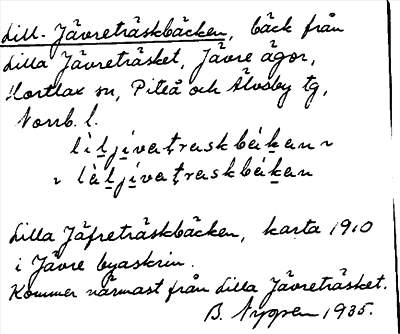 Lill-Jävreträskbäcken, bäck från
Lilla Jävreträsket, Jävre ägor,
Hortlax sn, Piteå och Älvsby tg,
Norrb. l.
lìl̠ji̠vat̠raskbák̠an ~
~ làl̠jívat̠raskbék̠an
Lilla Jäfreträskbäcken, karta 1910
i Jävre byaskrin.
Kommer närmast från Lilla Jävreträsket.
B. 1935.